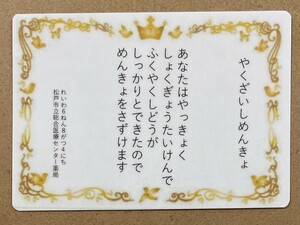 やくざいしめんきょ
あなたはやっきょく
しょくぎょうたいけんで
ふくやくしどうが
しっかりとできたので
めんきょをさずけます
れいわ6ねん8がつ4にち
松戸市立総合医療センター薬局